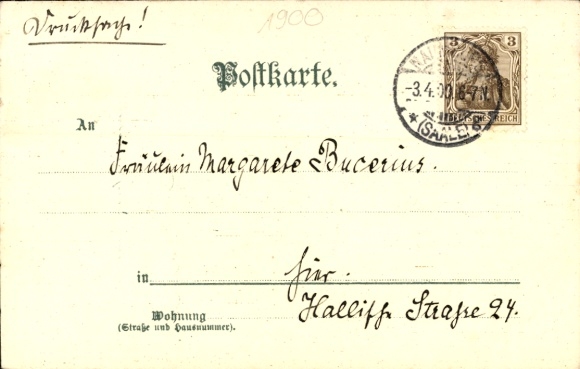 Drucksache!
1900
Postkarte.
3 3
-3.4.00. 6-7 N.
(SAALE)
REICH
An
Fräulein Margarete Bucerius.
in hier.
Wohnung
(Straße und Hausnummer).
Hallische Straße 24.